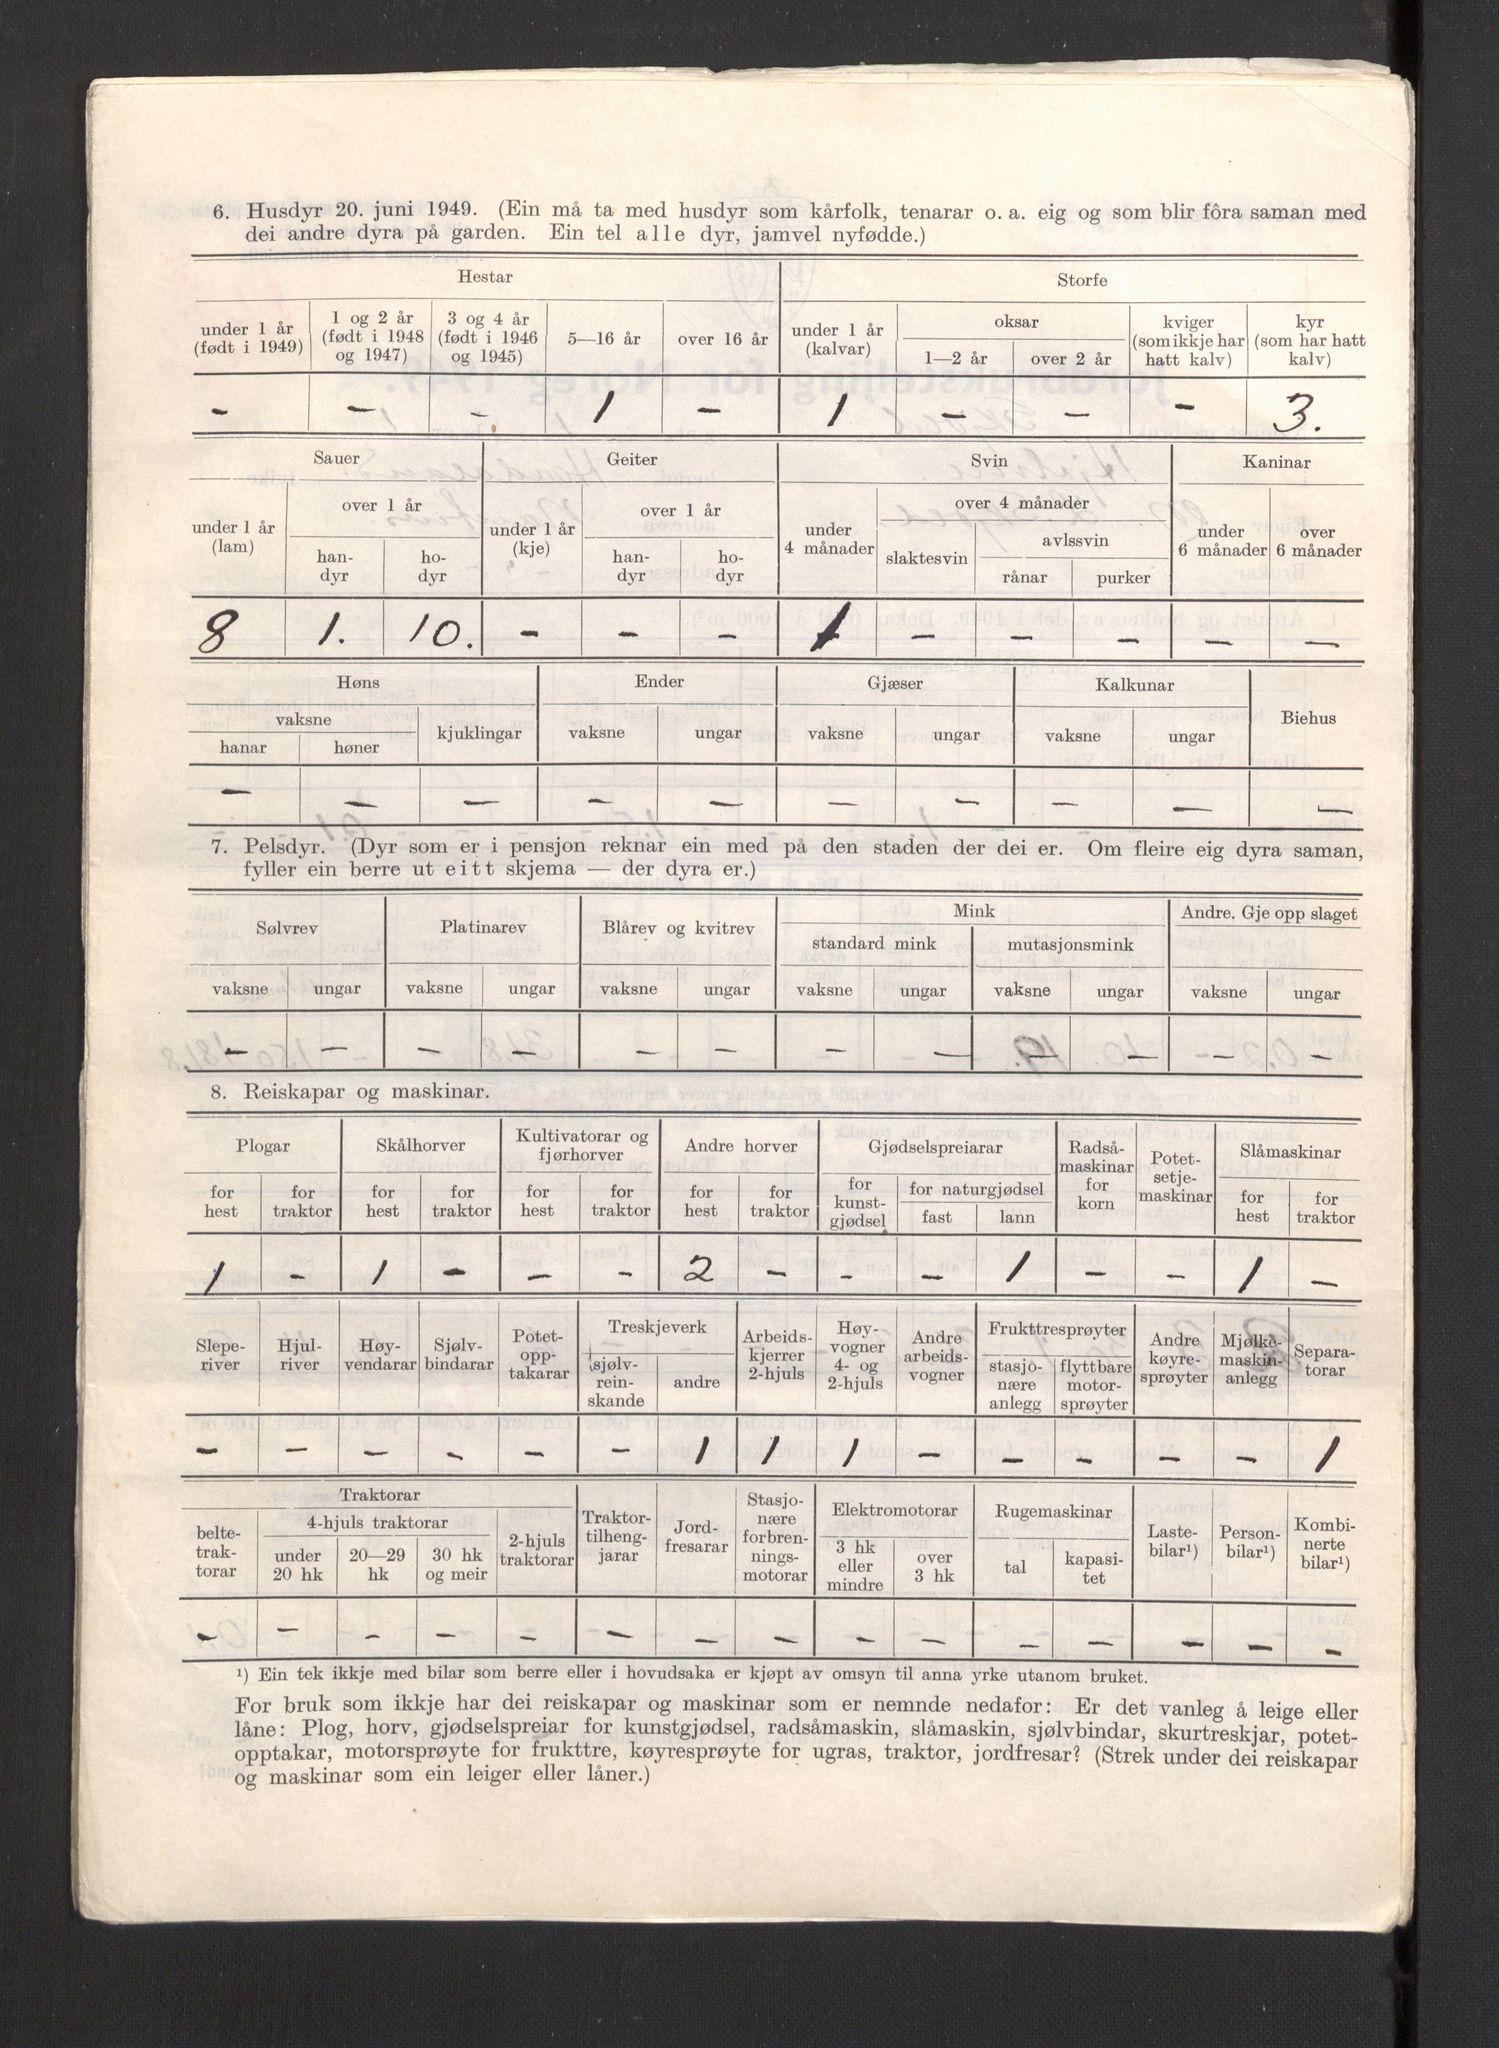 6. Husdyr 20. juni 1949. (Ein må ta med husdyr som kårfolk, tenarar o. a. eig og som blir fôra saman med
dei andre dyra på garden. Ein tel alle dyr, jamvel nyfødde.)
Hestar Storfe
under 1 år (født i 1949) 1 og 2 år (født i 1948 og 1947) 3 og 4 år (født i 1946 og 1945) 5—16 år over 16 år under 1 år (kalvar) oksar 1—2 år over 2 år kviger (som ikkje har hatt kalv) kyr (som har hatt kalv)
- - - 1 - 1 - - - 3.
Sauer Geiter Svin Kaninar
under 1 år (lam) over 1 år han-dyr ho-dyr under 1 år (kje) over 1 år han-dyr ho-dyr under 4 månader over 4 månader slaktesvin avlssvin rånar purker under 6 månader over 6 månader
8 1. 10. - - - 1 - - - - -
Høns Ender Gjæser Kalkunar Biehus
vaksne hanar høner kjuklingar vaksne ungar vaksne ungar vaksne ungar
- - - - - - - - - -
7. Pelsdyr. (Dyr som er i pensjon reknar ein med på den staden der dei er. Om fleire eig dyra saman,
fyller ein berre ut eitt skjema — der dyra er.)
Sølvrev Platinarev Blårev og kvitrev Mink Andre. Gje opp slaget
standard mink mutasjonsmink
vaksne ungar vaksne ungar vaksne ungar vaksne ungar vaksne ungar vaksne ungar
- - - - - - - - - - - -
8. Reiskapar og maskinar.
Plogar Skålhorver Kultivatorar og fjørhorver Andre horver Gjødselspreiarar Radså-maskinar for korn Potet-setje-maskinar Slåmaskinar
for hest for traktor for hest for traktor for hest for traktor for hest for traktor for kunst-gjødsel for naturgjødsel fast lann for hest for traktor
1 - 1 - - - 2 - - - 1 - - 1 -
Slepe-river Hjul-river Høy-vendarar Sjølv-bindarar Potet-opp-takarar Treskjeverk sjølv-rein-skande andre Arbeids-kjerrer 2-hjuls Høy-vogner 4- og 2-hjuls Andre arbeids-vogner Frukttresprøyter stasjo-nære anlegg flyttbare motor-sprøyter Andre køyre-sprøyter Mjølke-maskin-anlegg Separa-torar
- - - - - - 1 1 1 - - - - - 1
Traktorar Traktor-tilheng-jarar Jord-fresarar Stasjo-nære forbren-nings-motorar Elektromotorar Rugemaskinar Laste-bilar¹) Person-bilar¹) Kombi-nerte bilar¹)
belte-trak-torar 4-hjuls traktorar under 20 hk 20—29 hk 30 hk og meir 2-hjuls traktorar 3 hk eller mindre over 3 hk tal kapasi-tet
- - - - - - - - - - - - - - -
¹) Ein tek ikkje med bilar som berre eller i hovudsaka er kjøpt av omsyn til anna yrke utanom bruket.
For bruk som ikkje har dei reiskapar og maskinar som er nemnde nedafor: Er det vanleg å leige eller
låne: Plog, horv, gjødselspreiar for kunstgjødsel, radsåmaskin, slåmaskin, sjølvbindar, skurtreskjar, potet-
opptakar, motorsprøyte for frukttre, køyresprøyte for ugras, traktor, jordfresar? (Strek under dei reiskapar
og maskinar som ein leiger eller låner.)